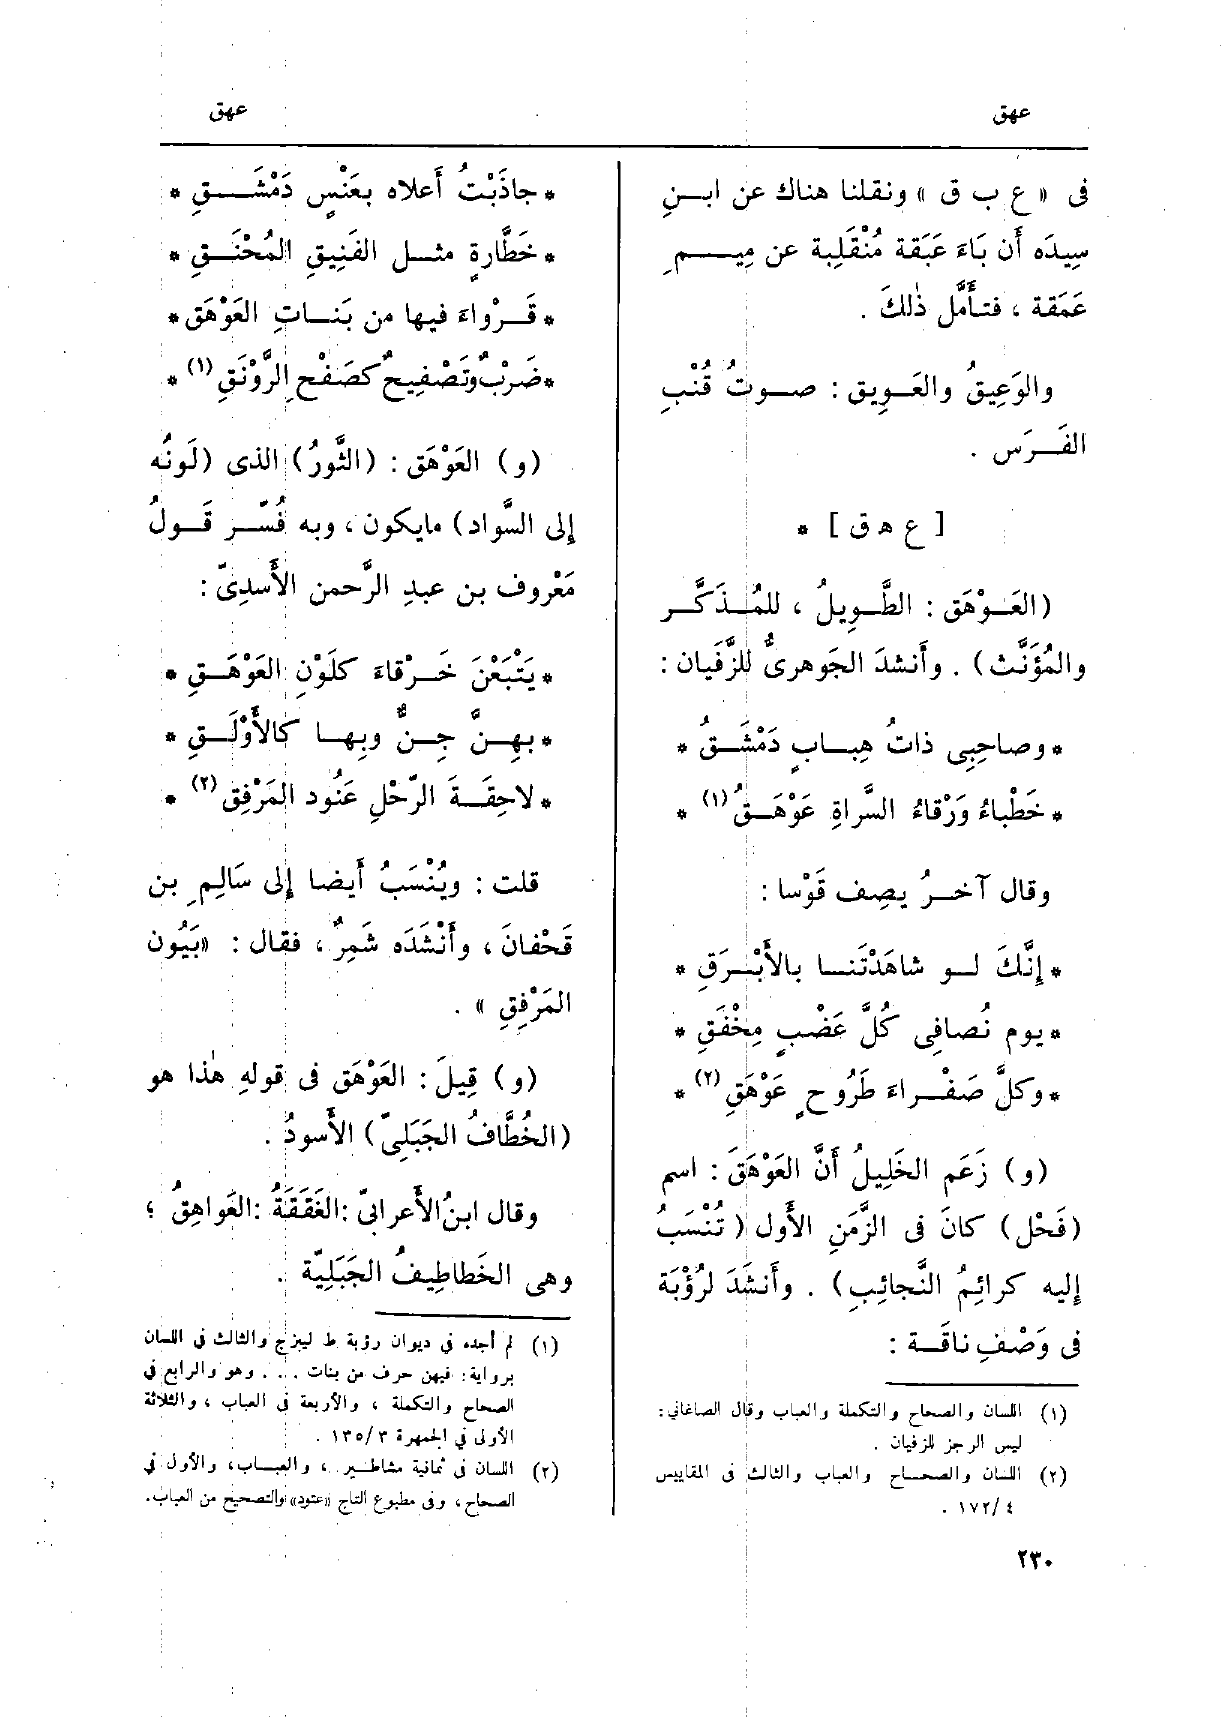 عهق
عهق
فى « ع ب ق » ونقلنا هناك عن ابـنِ
سِيدَه أَن بَاءَ عَبَقة مُنْقَلِبة عن مِيـمِ
عَمَقة ، فتأَمَّل ذٰلكَ .
والوَعِيقُ والعَوِيق : صـوتُ قُنْبِ
الفَـرَس .
[ ع ه ق ] *
(العَـوْهَق : الطَّـوِيلُ ، للمُـذَكَّـر
والمُؤَنَّث) . وأَنشدَ الجَوهرىُّ للزَّفَيان :
* وصاحِبِى ذاتُ هِبـابٍ دَمْشَـقُ *
* خَطْباءُ وَرْقاءُ السَّراةِ عَوْهَـقُ (١) *
وقال آخـرُ يصِف قَوْسا :
* إِنَّكَ لـو شاهَدْتَنـا بالأَبْـرَقِ *
* يوم نُصافِى كُلَّ عَضْبٍ مِخْفَقِ *
* وكلَّ صَفْـراءَ طَرُوحٍ عَوْهَقِ (٢) *
(و) زَعَم الخَلِيلُ أَنَّ العَوْهَقَ : اسم
(فَحْل) كانَ فى الزَّمَنِ الأَول (تُنْسَبُ
إليه كرائِمُ النَّجائِبِ) . وأَنشَدَ لرُؤْبَة
فى وَصْفِ ناقَـة :
(١) اللسان والصحاح والتكملة والعباب وقال الصاغانى :
ليس الرجز للزفيان .
(٢) اللسان والصحـاح والعباب والثالث فى المقاييس
٤ /١٧٢ .
* جاذَبْتُ أَعلاه بعَنْسٍ دَمْشَـقِ *
* خَطَّارةٍ مثـل الفَنِيقِ المُحْنَـقِ *
* قَـرْواءَ فيها من بَنـاتِ العَوْهَقِ *
* ضَرْبٌ وتَصْفِيحٌ كصَفْحِ الرَّوْنَقِ (١) *
(و) العَوْهَق : (الثَّورُ) الذى (لَونُه
إلى السَّواد) مايكون ، وبه فُسِّـر قَـولُ
مَعْروف بن عبدِ الرَّحمن الأَسدِىّ :
* يَتْبَعْنَ خَـرْقاءَ كلَوْنِ العَوْهَـقِ *
* بهِـنَّ جِـنٌّ وبِهـا كالأَوْلَـقِ *
* لاحِقَـةَ الرّحْلِ عَنُود المَرْفِق (٢) *
قلت : ويُنْسَبُ أَيضا إلى سَالِمِ بن
قَحْفانَ ، وأَنْشَدَه شَمِرٌ ، فقال : «بَيُون
المَرْفِقِ » .
(و) قِيلَ : العَوْهَق فى قولهِ هٰذا هو
(الخُطَّافُ الجَبَلِىّ) الأَسودُ .
وقال ابنُ الأَعرابىّ : الغَقَقَةُ : العَواهِقُ ؛
وهى الخَطاطِيفُ الجَبَلِيّة .
(١) لم أجده فى ديوان رؤبة ط ليبزج والثالث فى اللسان
برواية : فيهن حرف من بنات ... . وهو والرابع فى
الصحاح والتكملة ، والأربعة فى العباب ، والثلاثة
الأولى فى الجمهرة ٣/ ١٣٥ .
(٢) اللسان فى ثمانية مشاطير ، والعبـاب، والأول فى
الصحاح، وفى مطبوع التاج «عتود» والتصحيح من العباب.
٢٣٠